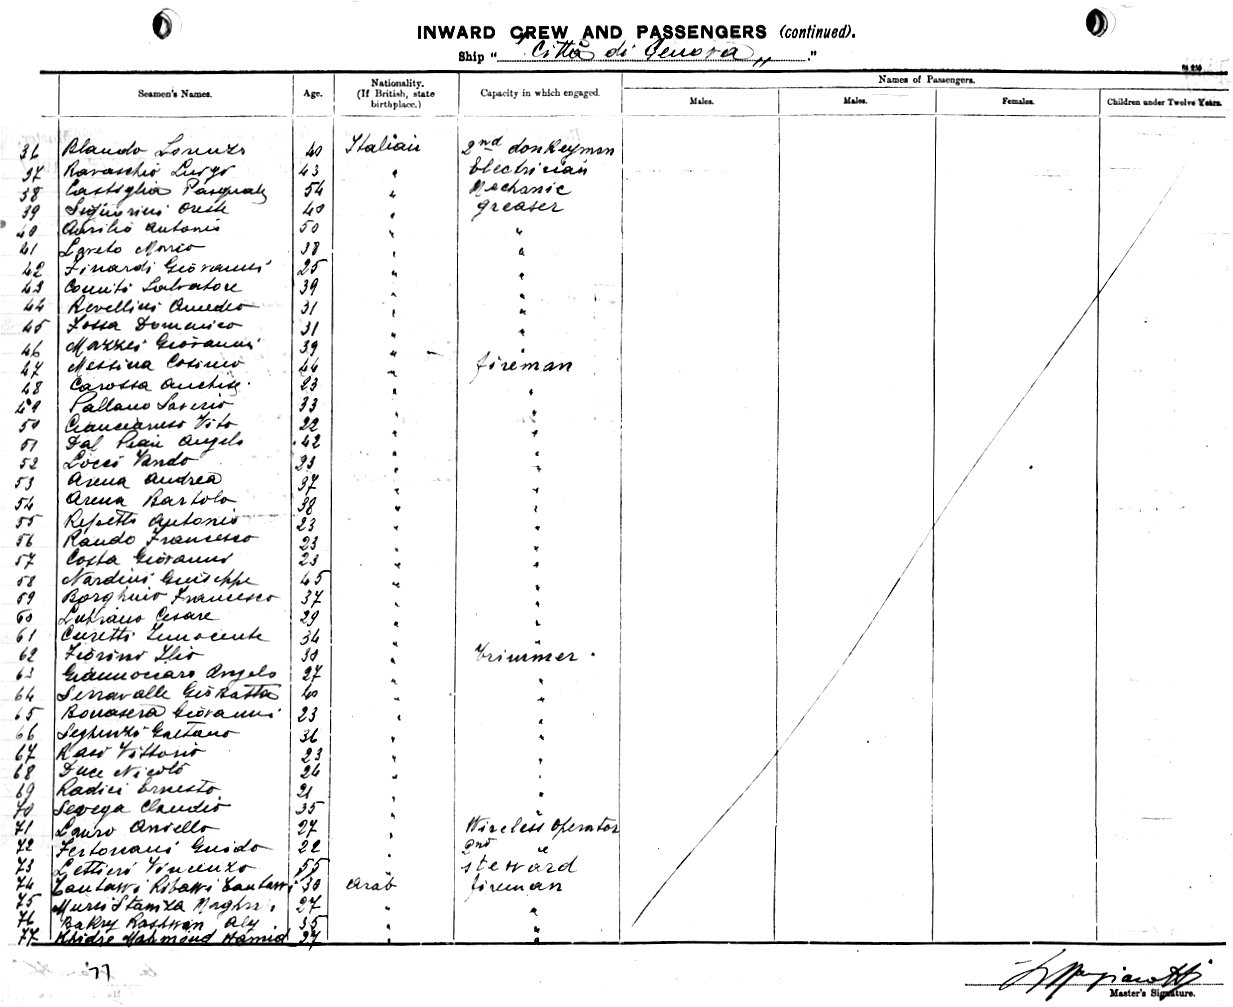 INWARD CREW AND PASSENGERS (continued).
Ship "Città di Genova"
Seamen's Names. Age. Nationality. (If British, state birthplace.) Capacity in which engaged. Names of Passengers.
Males. Males. Females. Children under Twelve Years.
36 Blando Lorenzo 40 Italian 2nd donkeyman
37 Ravaschio Luigi 43 " Electrician
38 Castiglia Pasquale 54 " Mechanic
39 Signorini Oreste 40 " greaser
40 Aurilio Antonio 50 " "
41 Loreto Mario 38 " "
42 Finardi Giovanni 25 " "
43 Comito Salvatore 39 " "
44 Revellini Amedeo 31 " "
45 Fossa Domenico 31 " "
46 Mazzei Giovanni 39 " "
47 Messina Cosimo 44 " fireman
48 Carossa 23 " "
49 Pallano Saverio 33 " "
50 Vito 22 " "
51 Dal Angelo 42 " "
52 Locci Vando 23 " "
53 Arena Andrea 37 " "
54 Arena Bartolo 38 " "
55 Repetto Antonio 23 " "
56 Rando Francesco 23 " "
57 Costa Giovanni 23 " "
58 Nardini Guiseppe 45 " "
59 Borghino Francesco 37 " "
60 Lubiano Cesare 29 " "
61 Curetti Innocente 34 " "
62 Fiorino Ilio 30 " trimmer
63 Giannoccaro Angelo 27 " "
64 Serravalle Gio Batta 40 " "
65 Bonasera Giovanni 23 " "
66 Seghenzi Gaetano 36 " "
67 Raso Vittorio 23 " "
68 Duce Nicolò 24 " "
69 Radici Ernesto 21 " "
70 Sevega Claudio 35 " "
71 Lauro Aniello 27 " Wireless Operator
72 Fertonani Guido 22 " 2nd "
73 Lettieri Vincenzo 55 " steward
74 Tantawi Ribawi Tantawi 30 Arab fireman
75 Mursi 27 " "
76 Bakry Rashwan Aly 35 " "
77 Khidre Mahmoud Hamid 37 " "
77
Master's Signature.